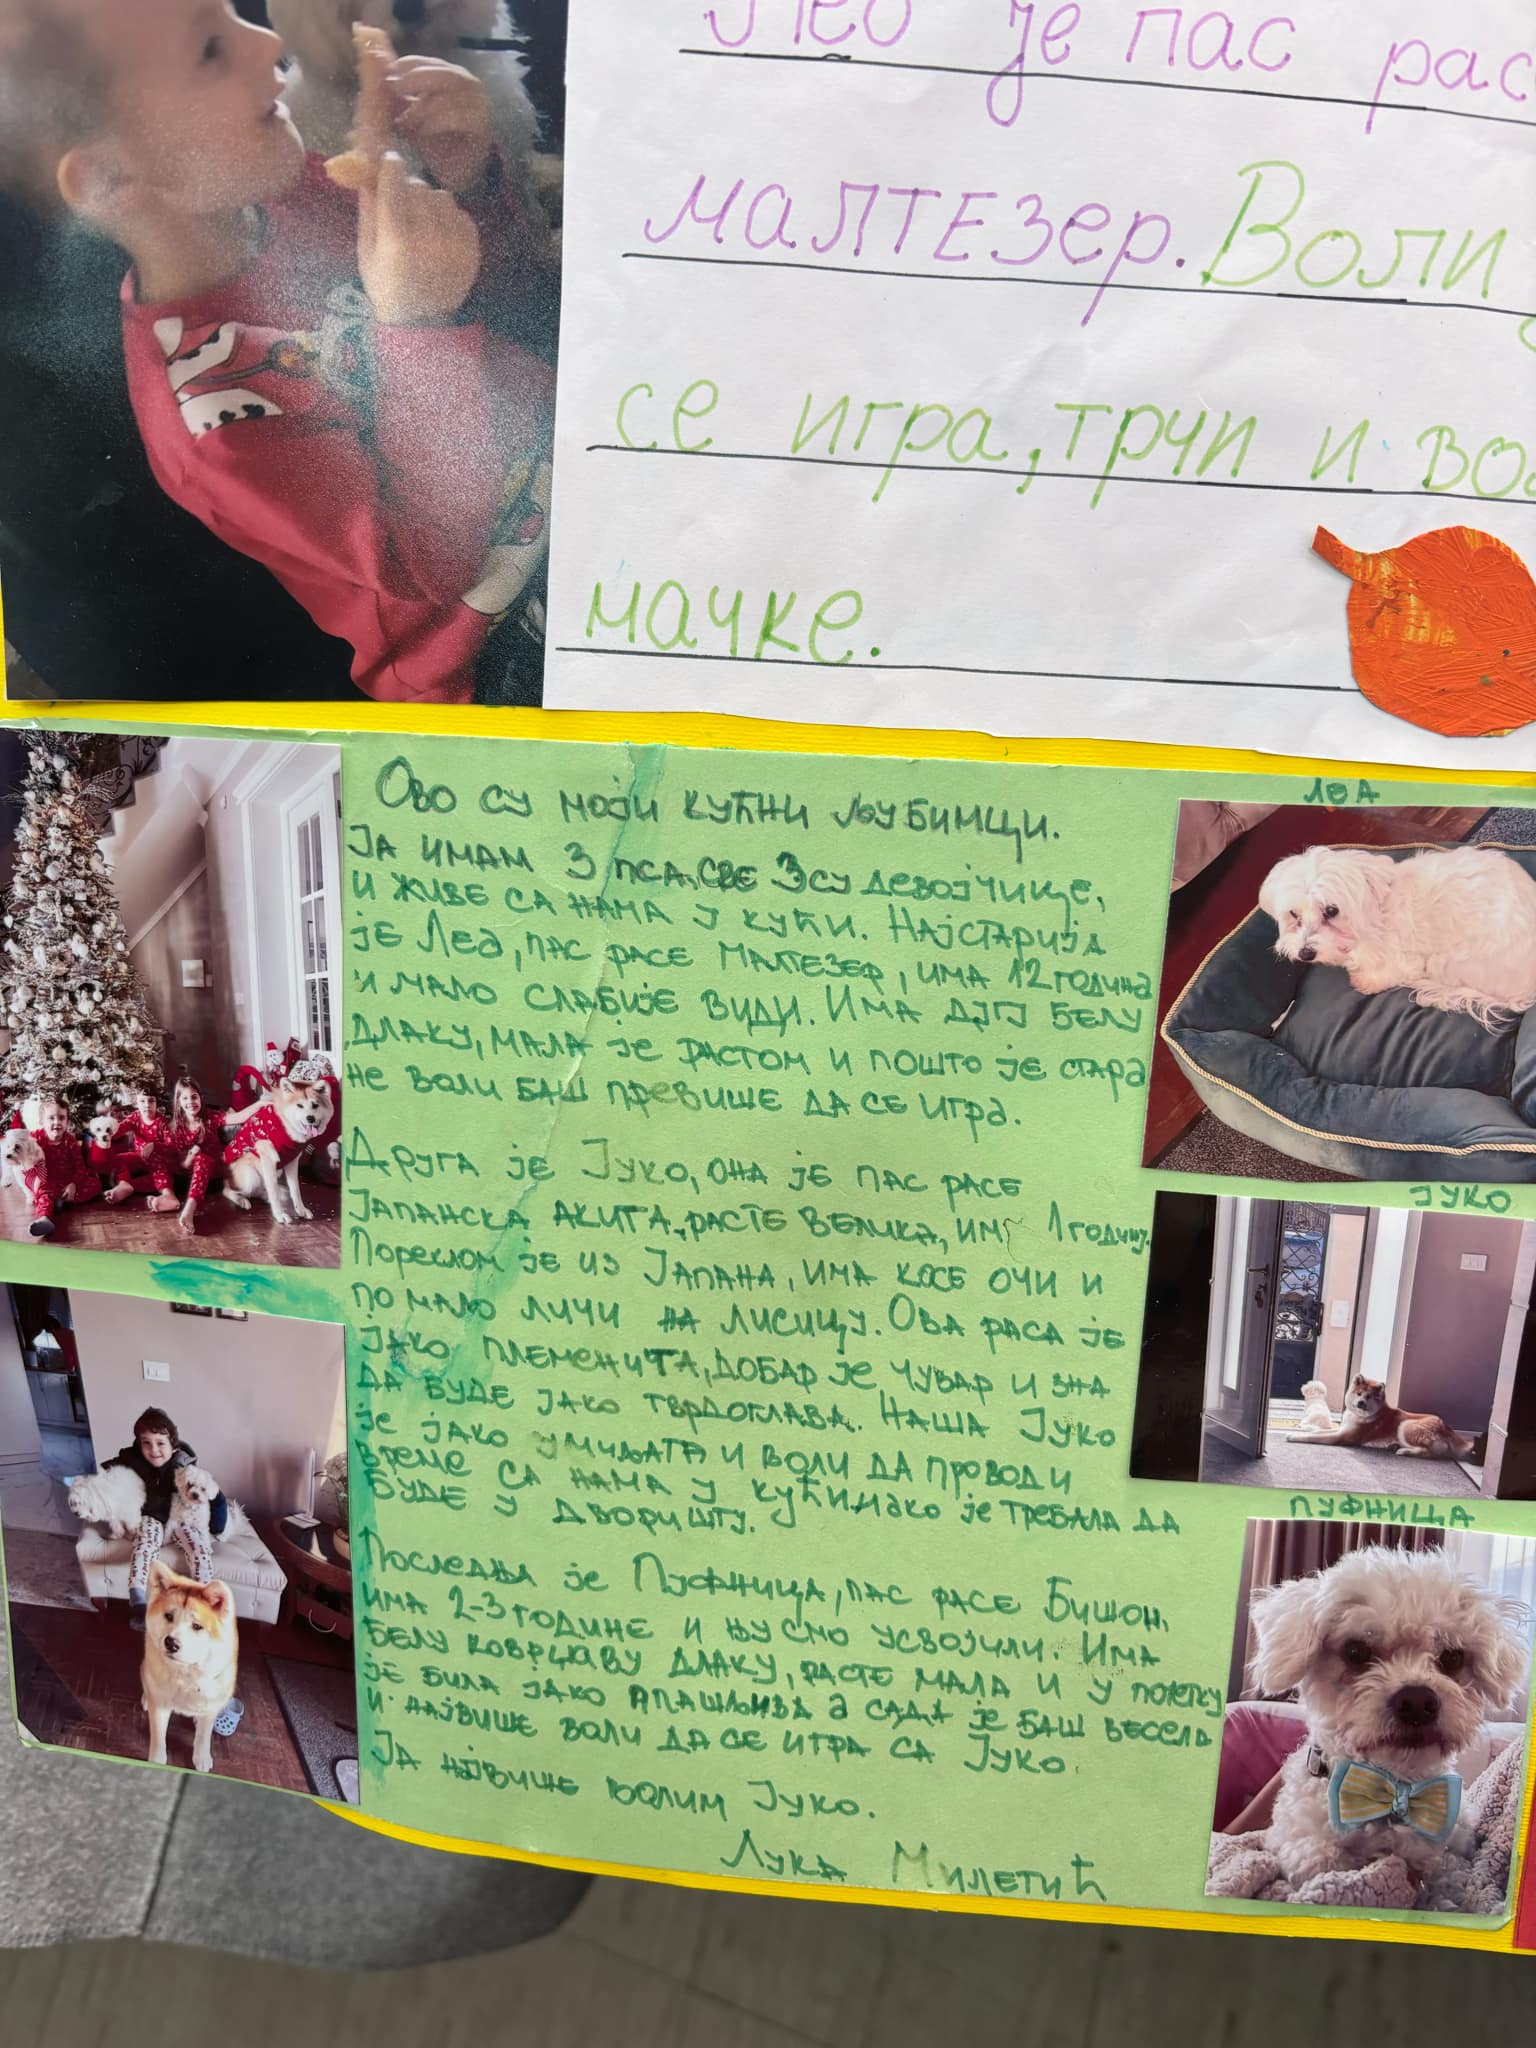 Лео је пас рас
малтезер. Воли
се игра, трчи и
мачке.
Ово су моји кућни љубимци.
Ја имам 3 пса, све 3 су девојчице,
и живе са нама у кући. Најстарија
је Леа, пас расе малтезер, има 12 година
и мало слабије види. Има дугу белу
длаку, мала је растом и пошто је стара
не воли баш превише да се игра.
Друга је Јуко, она је пас расе
јапанска акита, расте велика, има 1 годину.
Пореклом је из Јапана, има косе очи и
по мало личи на лисицу. Ова раса је
јако племенита, добар је чувар и зна
да буде јако тврдоглава. Наша Јуко
је јако умиљата и воли да проводи
време са нама у кући иако је требала да
буде у дворишту.
Последња је Пуфница, пас расе Бишон,
има 2-3 године и њу смо усвојили. Има
белу коврџаву длаку, расте мала и у почетку
је била јако плашљива а сада је баш весела
и највише воли да се игра са Јуко.
Ја нјвише волим Јуко.
Лука Милетић
ЛЕА
ЈУКО
ПУФНИЦА